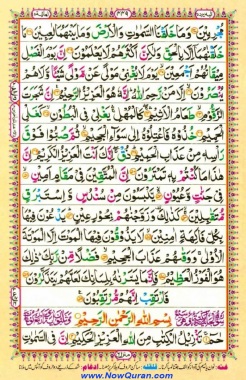 مُجْرِمِيْنَ وَمَا خَلَقْنَا السَّمٰوٰتِ وَالْاَرْضَ وَمَا بَيْنَهُمَا لٰعِبِيْنَ مَا
خَلَقْنٰهُمَاۤ اِلَّا بِالْحَقِّ وَلٰكِنَّ اَكْثَرَهُمْ لَا يَعْلَمُوْنَ اِنَّ يَوْمَ الْفَصْلِ
مِيْقَاتُهُمْ اَجْمَعِيْنَ يَوْمَ لَا يُغْنِيْ مَوْلًى عَنْ مَّوْلًى شَيْئًا وَّلَا هُمْ
يُنْصَرُوْنَ اِلَّا مَنْ رَّحِمَ اللّٰهُ اِنَّهٗ هُوَ الْعَزِيْزُ الرَّحِيْمُ اِنَّ شَجَرَتَ
الزَّقُّوْمِ طَعَامُ الْاَثِيْمِ كَالْمُهْلِ يَغْلِيْ فِي الْبُطُوْنِ كَغَلْيِ
الْحَمِيْمِ خُذُوْهُ فَاعْتِلُوْهُ اِلٰى سَوَآءِ الْجَحِيْمِ ثُمَّ صُبُّوْا فَوْقَ
رَاْسِهٖ مِنْ عَذَابِ الْحَمِيْمِ ذُقْ اِنَّكَ اَنْتَ الْعَزِيْزُ الْكَرِيْمُ اِنَّ
هٰذَا مَا كُنْتُمْ بِهٖ تَمْتَرُوْنَ اِنَّ الْمُتَّقِيْنَ فِيْ مَقَامٍ اَمِيْنٍ
فِيْ جَنّٰتٍ وَّعُيُوْنٍ يَّلْبَسُوْنَ مِنْ سُنْدُسٍ وَّاِسْتَبْرَقٍ
مُّتَقٰبِلِيْنَ كَذٰلِكَ وَزَوَّجْنٰهُمْ بِحُوْرٍ عِيْنٍ يَدْعُوْنَ فِيْهَا
بِكُلِّ فَاكِهَةٍ اٰمِنِيْنَ لَا يَذُوْقُوْنَ فِيْهَا الْمَوْتَ اِلَّا الْمَوْتَةَ
الْاُوْلٰى وَوَقٰىهُمْ عَذَابَ الْجَحِيْمِ فَضْلًا مِّنْ رَّبِّكَ ذٰلِكَ
هُوَ الْفَوْزُ الْعَظِيْمُ فَاِنَّمَا يَسَّرْنٰهُ بِلِسَانِكَ لَعَلَّهُمْ يَتَذَكَّرُوْنَ
فَارْتَقِبْ اِنَّهُمْ مُّرْتَقِبُوْنَ
بِسْمِ اللّٰهِ الرَّحْمٰنِ الرَّحِيْمِ
حٰمٓ تَنْزِيْلُ الْكِتٰبِ مِنَ اللّٰهِ الْعَزِيْزِ الْحَكِيْمِ اِنَّ فِي السَّمٰوٰتِ
www.NowQuran.com